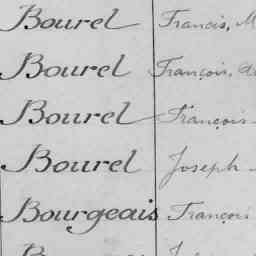 Bourel Francis, M
Bourel François, A
Bourel François
Bourel Joseph
Bourgeais François